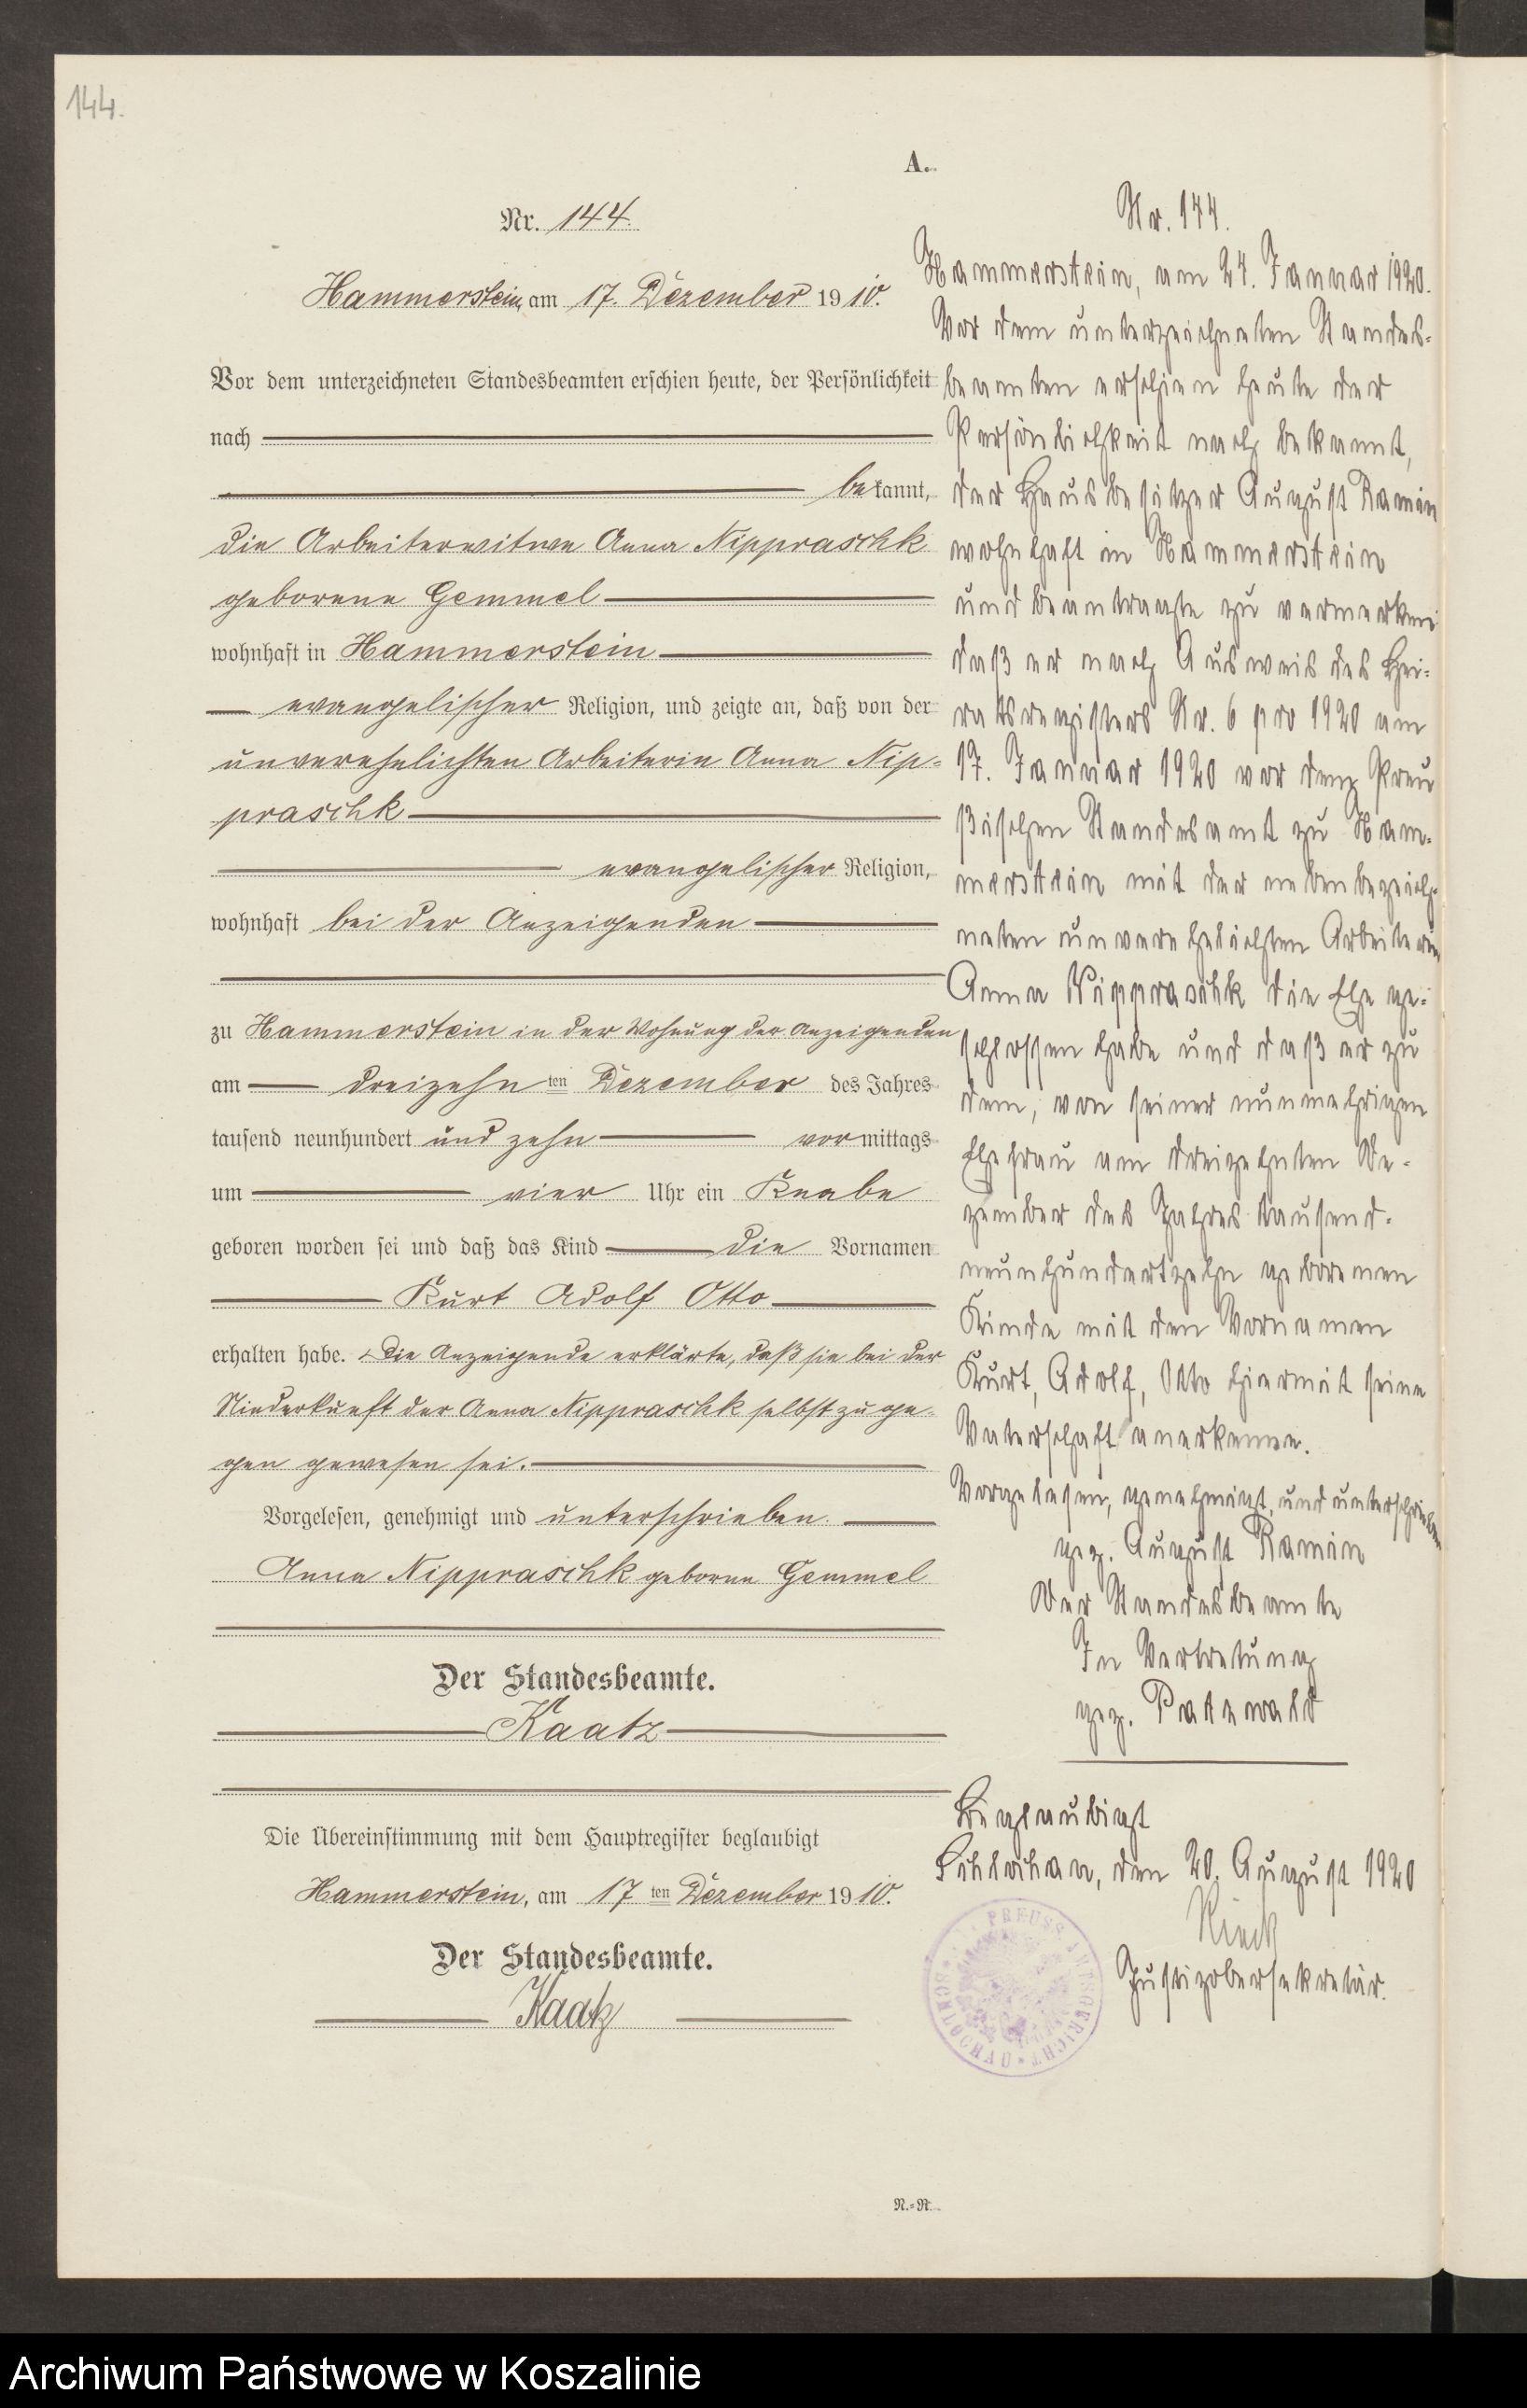 144.
A.
Nr. 144.
Hammerstein, am 17. Dezember 1910.
Vor dem unterzeichneten Standesbeamten erschien heute, der Persönlichkeit
nach
bekannt,
die Arbeiterwitwe Anna Nippraschk
geborene Gemmel
wohnhaft in Hammerstein
evangelischer Religion, und zeigte an, daß von der
unverehelichten Arbeiterin Anna Nip-
praschk
evangelischer Religion,
wohnhaft bei der Anzeigenden
zu Hammerstein in der Wohnung der Anzeigenden
am dreizehnten Dezember des Jahres
tausend neunhundert und zehn vormittags
um vier Uhr ein Knabe
geboren worden sei und daß das Kind die Vornamen
Kurt Adolf Otto
erhalten habe. Die Anzeigende erklärte, daß sie bei der
Niederkunft der Anna Nippraschk selbst zuge-
gen gewesen sei.
Vorgelesen, genehmigt und unterschrieben.
Anna Nippraschk geborne Gemmel
Der Standesbeamte.
Kaatz
Die Übereinstimmung mit dem Hauptregister beglaubigt
Hammerstein, am 17ten Dezember 1910.
Der Standesbeamte.
Kaatz
Nr. 144.
Hammerstein, am 24. Januar 1920.
Vor dem unterzeichneten Standes-
beamten erschien heute der
Persönlichkeit nach bekannt,
der Hausbesitzer August Ramin
wohnhaft in Hammerstein
und beantragte zu vermerken
daß er nach Ausweis des Hei-
ratsregisters Nr. 6 pro 1920 am
17. Januar 1920 vor dem Preu
ßischen Standesamt zu Ham-
merstein mit der nebenbezeich-
neten unverehelichten Arbeiterin
Anna Nippraschk die Ehe ge-
schlossen habe und daß er zu
dem, von seiner nunmehrigen
Ehefrau am dreizehnten De-
zember des Jahres tausend-
neunhundertzehn geborenen
Kinde mit den Vornamen
Kurt, Adolf, Otto hiermit seine
Vaterschaft anerkenne.
Vorgelesen, genehmigt und unterschrieben
gez. August Ramin
Der Standesbeamte
In Vertretung
gez.
Beglaubigt
Schlochau, den 20. August 1920
Justizobersekretär.
PREUSS. AMTSGERICHT * SCHLOCHAU *
N.-N.
Archiwum Państwowe w Koszalinie